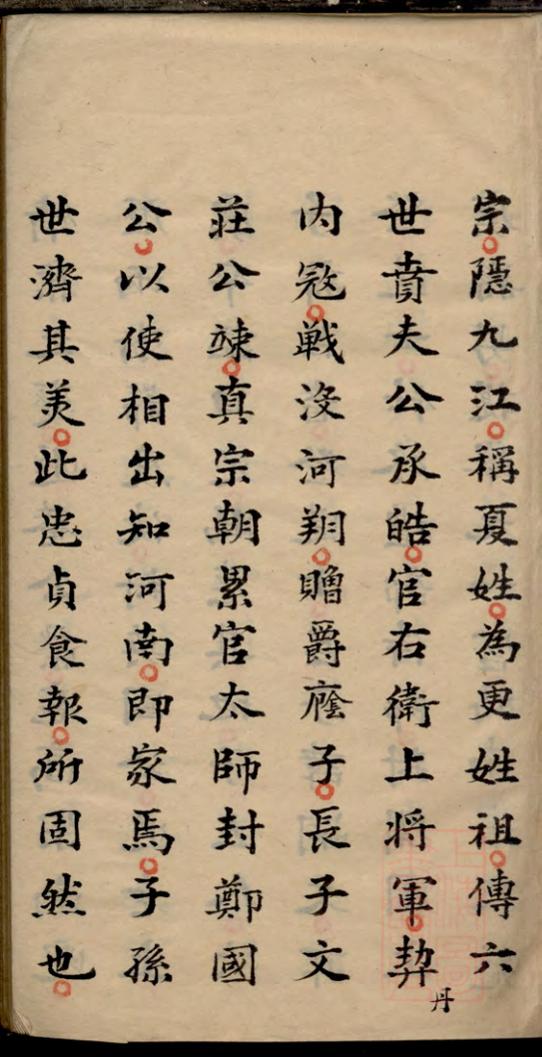 宗隱九江稱夏姓為更姓祖傳六
世賁夫公承皓官右衛上将軍契丹
内冦戦沒河翔贈爵廕子長子文
莊公竦真宗朝累官太師封鄭國
公以使相出知河南即家焉子孫
世濟其美此忠貞食報所固然也